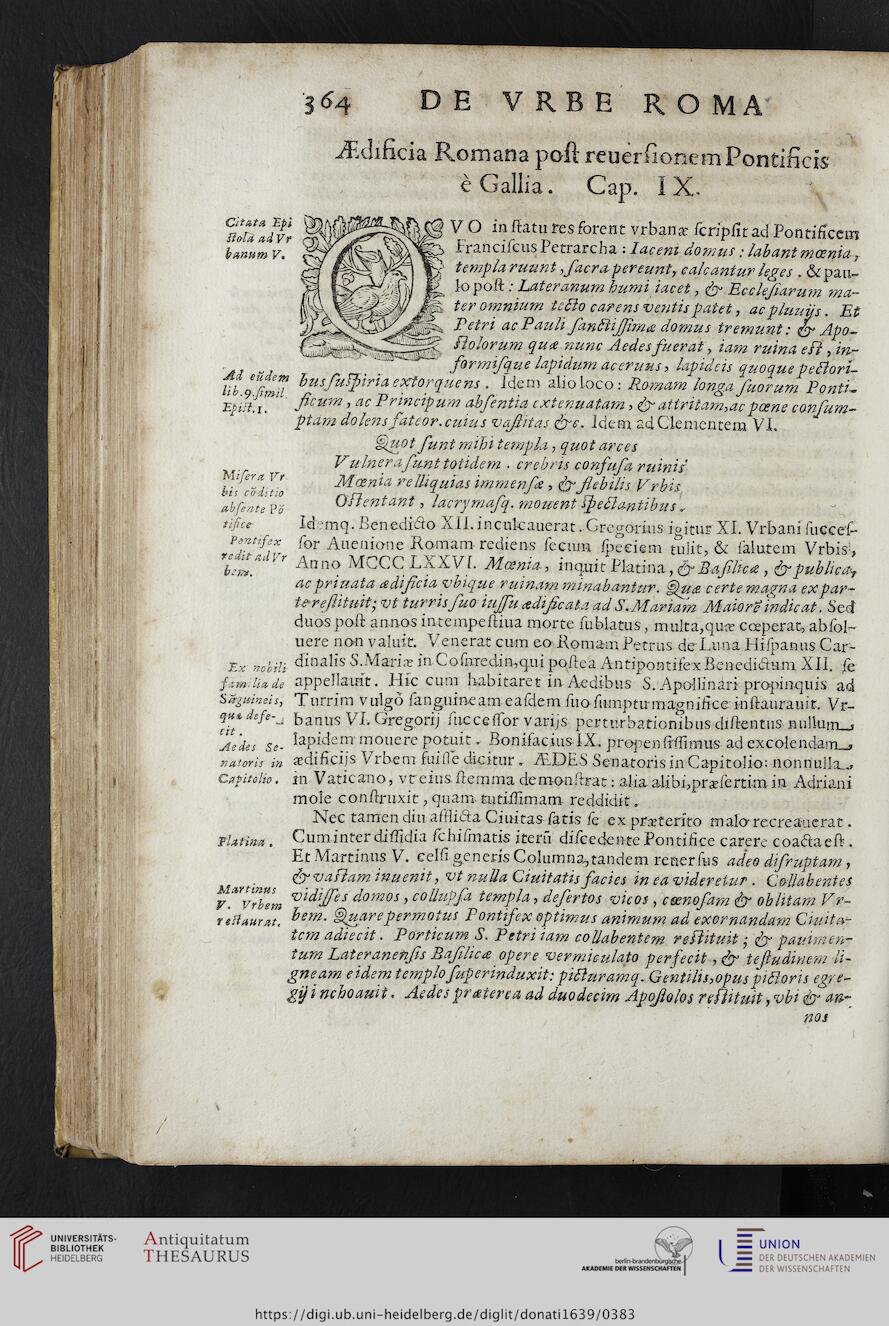 364 DE VRBE ROMA
Ædificia Romana poſt reuerſionem Pontificis
è Gallia. Cap. IX.
Citata Epi
ſtola ad Vr
banum V.
QVO in ſtatu res forent vrbanæ ſcripſit ad Pontificem
Franciſcus Petrarcha : Iacent domus : labant mœnia,
templa ruunt, ſacra pereunt, calcantur leges. & pau-
lo poſt : Lateranum humi iacet, & Eccleſiarum ma-
ter omnium tecto carens ventis patet, ac pluuijs. Et
Petri ac Pauli ſanctiſſimæ domus tremunt : & Apo-
ſtolorum quæ nunc Aedes fuerat, iam ruina eſt, in-
formiſque lapidum aceruus, lapideis quoque pectori-
Ad eũdem
lib.9.ſimil.
Epiſt.1.
bus ſuſpiria extorquens. Idem alio loco : Romam longa ſuorum Ponti-
ficum, ac Principum abſentia extenuatam, & attritam, ac pœne conſum-
ptam dolens fateor. cuius vaſtitas &c. Idem ad Clementem VI.
Quot ſunt mihi templa, quot arces
Vulnera ſunt totidem. crebris confuſa ruinis
Mœnia relliquias immenſæ, & flebilis Vrbis
Oſtentant, lacrymaſq. mouent ſpectantibus.
Miſera Vr
bis cõditio
abſente Põ
tifice
Pontifex
redit ad Vr
bem.
Idemq. Benedicto XII. inculcauerat. Gregorius igitur XI. Vrbani ſucceſ-
ſor Auenione Romam rediens ſecum ſpeciem tulit, & ſalutem Vrbis,
Anno MCCCLXXVI. Mœnia, inquit Platina, & Baſilicæ, & publica,
ac priuata ædificia vbique ruinam minabantur. Quæ certe magna ex par-
te reſtituit; vt turris ſuo iuſſu ædificata ad S. Mariam Maiorẽ indicat. Sed
duos poſt annos intempeſtiua morte ſublatus, multa, quæ cœperat, abſol-
uere non valuit. Venerat cum eo Romam Petrus de Luna Hiſpanus Car-
dinalis S. Mariæ in Coſmedin, qui poſtea Antipontifex Benedictum XII. ſe
appellauit. Hic cum habitaret in Aedibus S. Apollinari propinquis ad
Turrim vulgò ſanguineam eaſdem ſuo ſumptu magnifice inſtaurauit. Vr-
banus VI. Gregorij ſucceſſor varijs perturbationibus diſtentus nullum
lapidem mouere potuit. Bonifacius IX. propenſiſſimus ad excolendam
ædificijs Vrbem fuiſſe dicitur. ÆDES Senatoris in Capitolio: nonnulla
in Vaticano, vt eius ſtemma demonſtrat : alia alibi, præſertim in Adriani
mole conſtruxit, quam tutiſſimam reddidit.
Ex nobili
familia de
Sãguineis,
quæ defe-
cit.
Aedes Se-
natoris in
Capitolio.
Nec tamen diu afflicta Ciuitas ſatis ſe ex præterito malo recreauerat.
Cum inter diſſidia ſchiſmatis iterũ diſcedente Pontifice carere coacta eſt.
Et Martinus V. celſi generis Columna, tandem reuerſus adeo diſruptam,
& vaſtam inuenit, vt nulla Ciuitatis facies in ea videretur. Collabentes
vidiſſes domos, collupſa templa, deſertos vicos, cœnoſam & oblitam Vr-
bem. Quare permotus Pontifex optimus animum ad exornandam Ciuita-
tem adiecit. Porticum S. Petri iam collabentem reſtituit; & pauimen-
tum Lateranenſis Baſilicæ opere vermiculato perfecit, & teſtudinem li-
gneam eidem templo ſuperinduxit: picturamq. Gentilis, opus pictoris egre-
gij inchoauit. Aedes præterea ad duodecim Apoſtolos reſtituit, vbi & an-
nos
Platina.
Martinus
V. Vrbem
reſtaurat.
UNIVERSITÄTS-
BIBLIOTHEK
HEIDELBERG
Antiquitatum
THESAURUS
berlin-brandenburgische
AKADEMIE DER WISSENSCHAFTEN
UNION
DER DEUTSCHEN AKADEMIEN
DER WISSENSCHAFTEN
https://digi.ub.uni-heidelberg.de/diglit/donati1639/0383